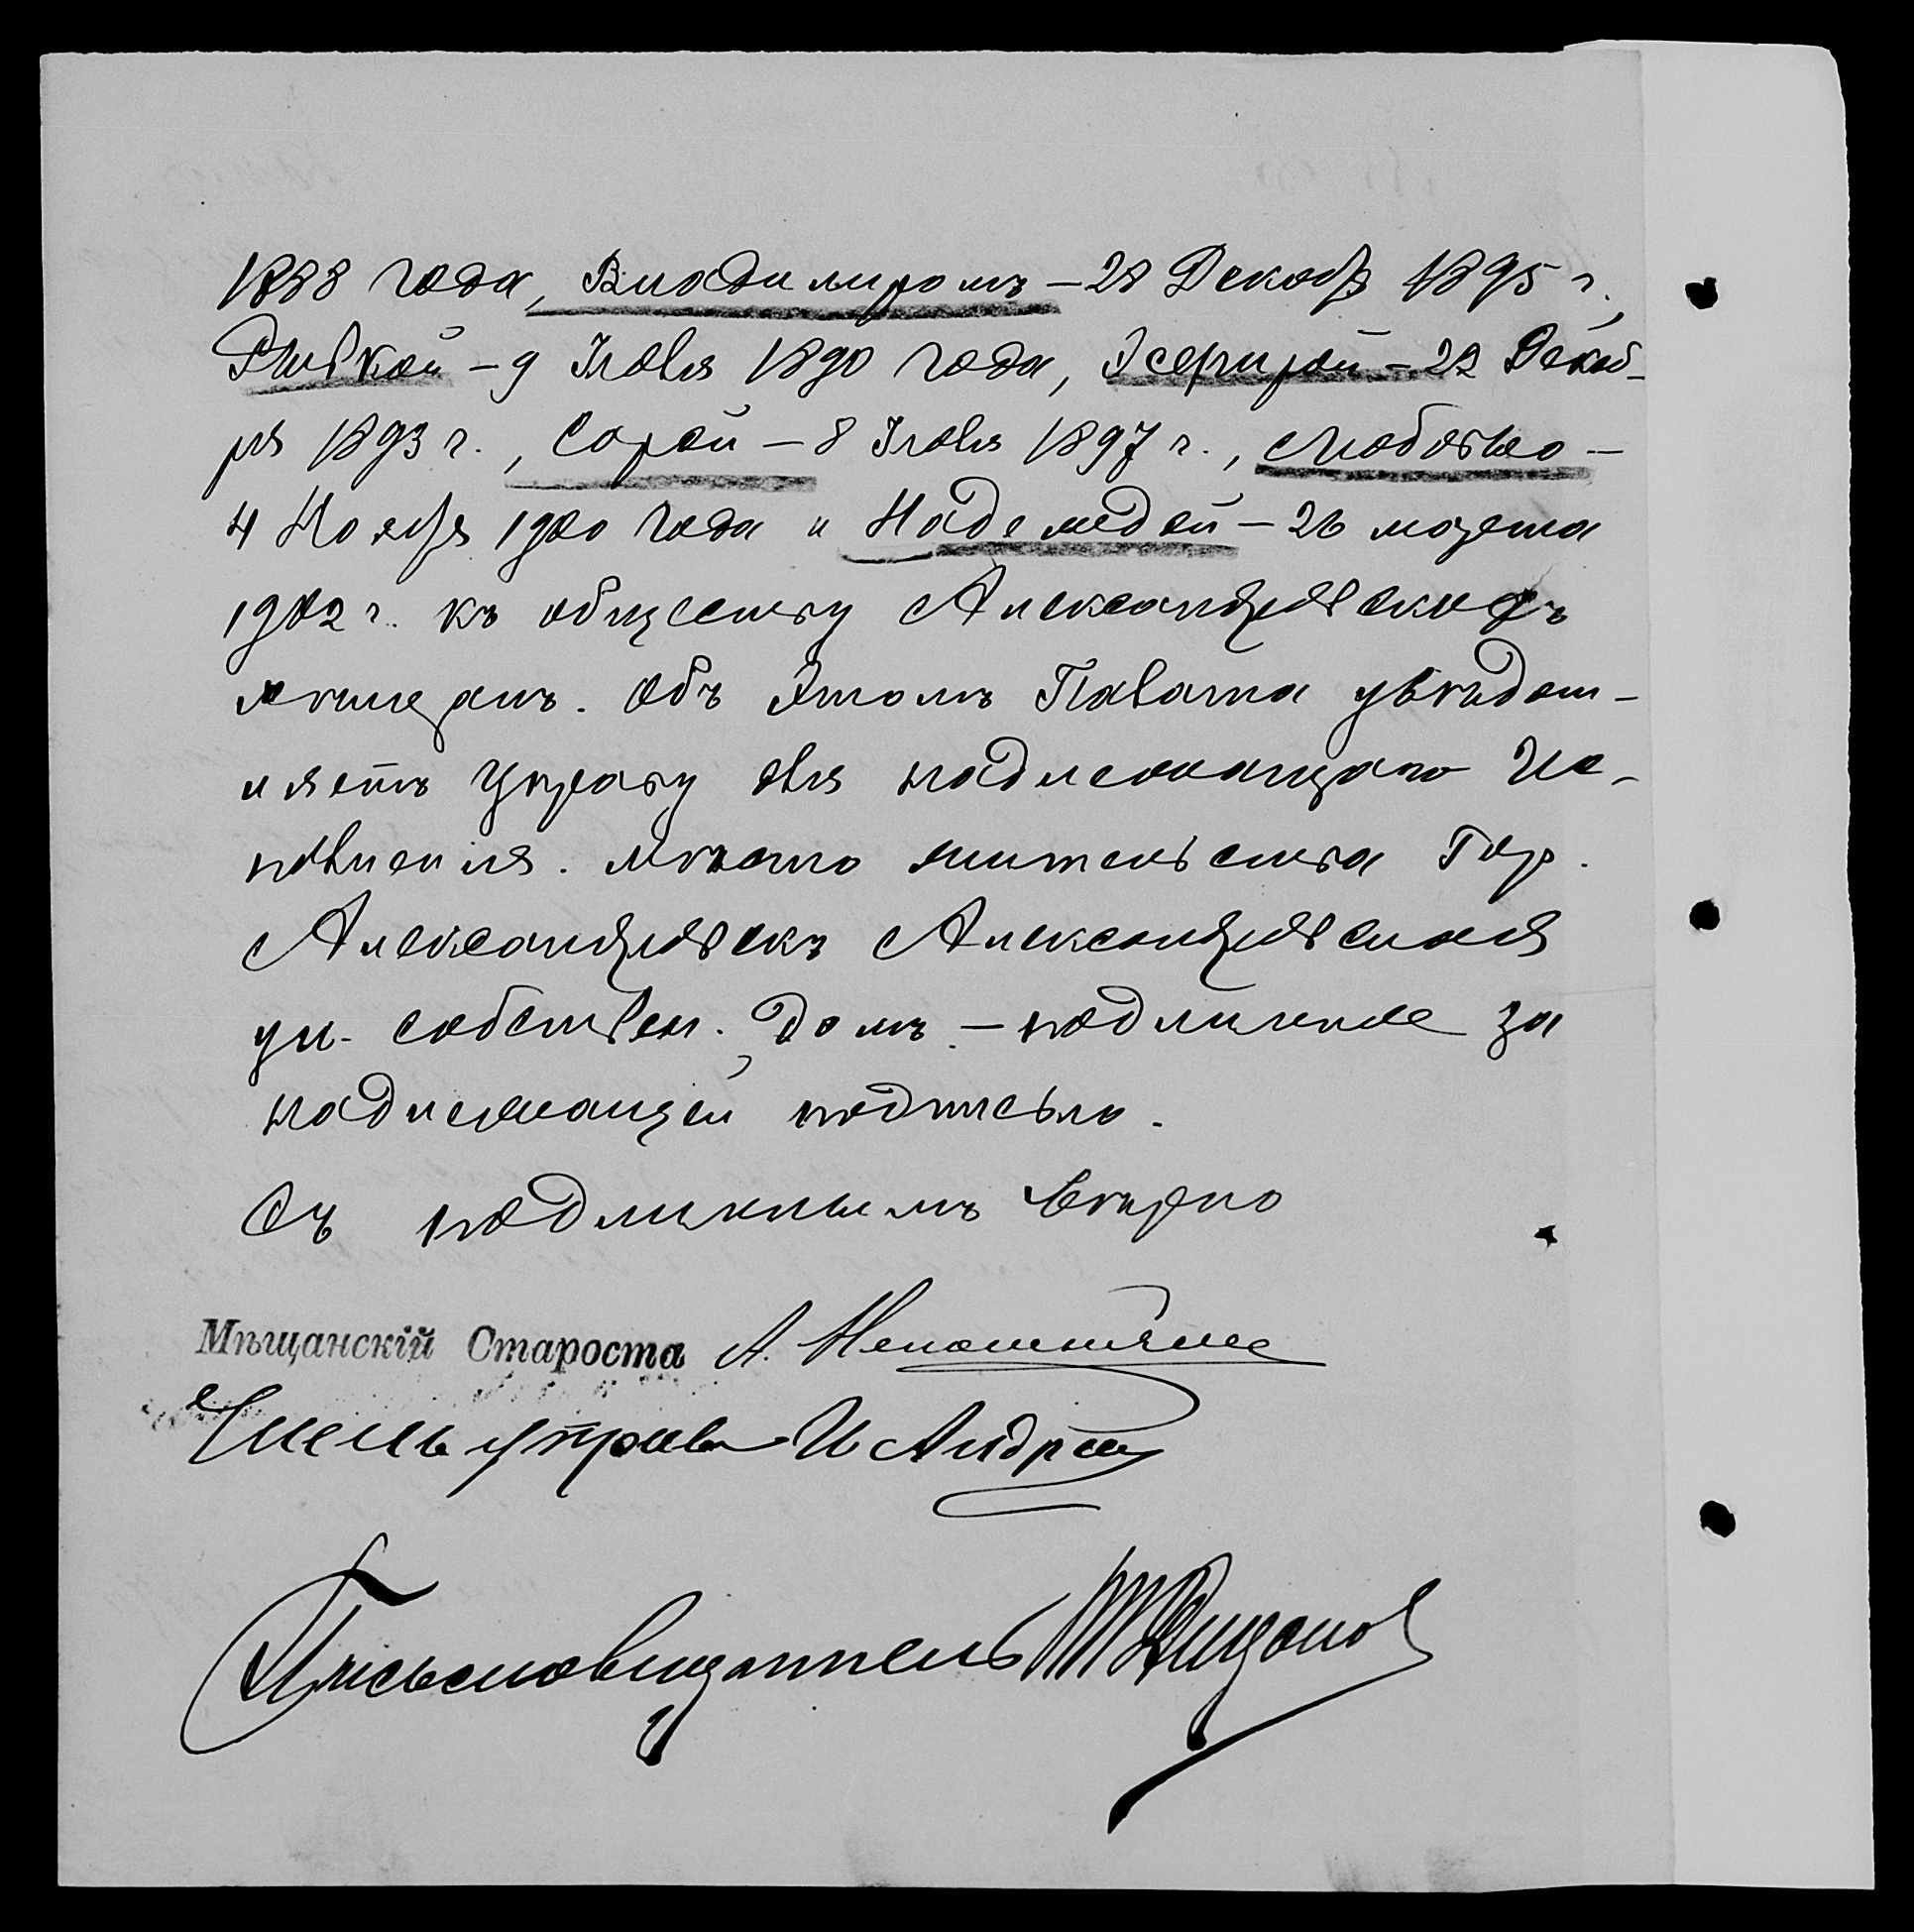 1888 года, Владимиромъ – 28 Декабр 1895 г.,
Ривкой – 9 Іюля 1890 года, Эсфирой – 22 Декаб-
ря 1893 г., Сарой – 8 Іюля 1897 г., Любовью –
4 Ноября 1900 года и Надеждой – 26 марта
1902 г. къ обществу Александровскихъ
мѣщанъ. Объ этомъ Палата увѣдом-
ляетъ Управу для надлежащаго Ис-
полненія. Мѣсто жительства Гор.
Александровскъ Александровская
ул. собствен. домъ. – подлинное за
надлежащей подписью.
Съ подлиннымъ вѣрно
Мѣщанскій Староста А.
Членъ управы И Андр
Письмоводитель